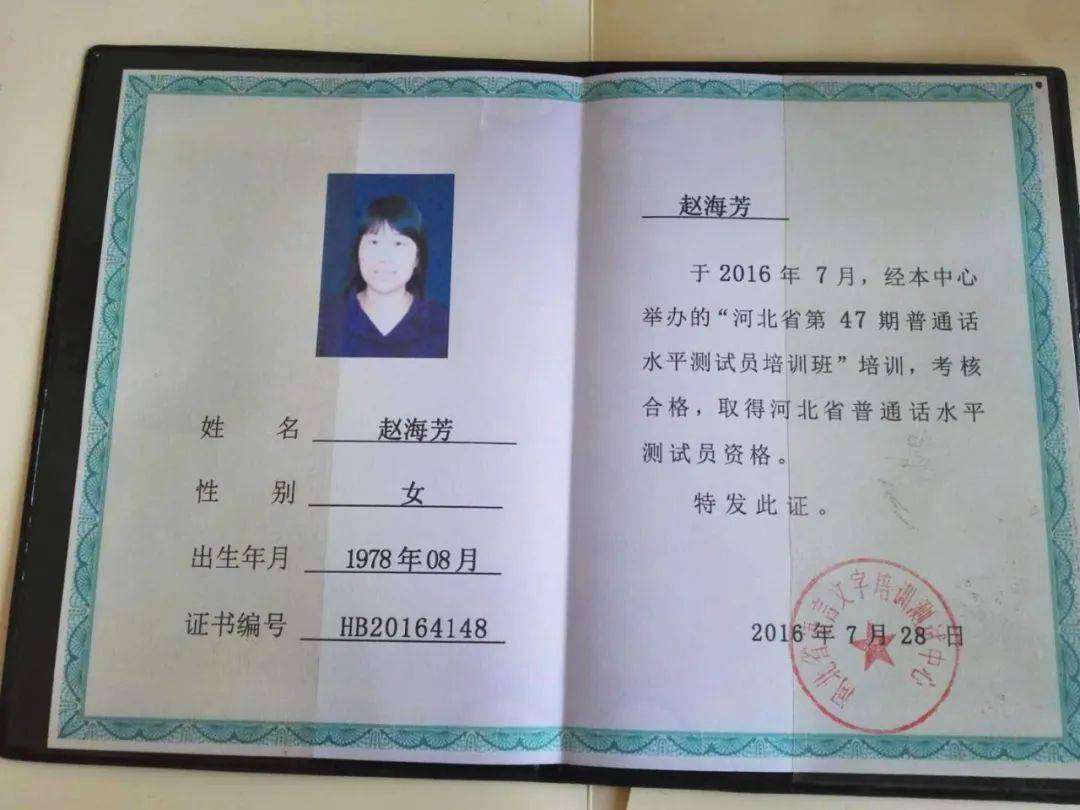 姓名 赵海芳
性别 女
出生年月 1978年08月
证书编号 HB20164148
赵海芳
于2016年7月，经本中心
举办的“河北省第47期普通话
水平测试员培训班”培训，考核
合格，取得河北省普通话水平
测试员资格。
特发此证。
2016年7月28日
河北省语言文字培训测试中心